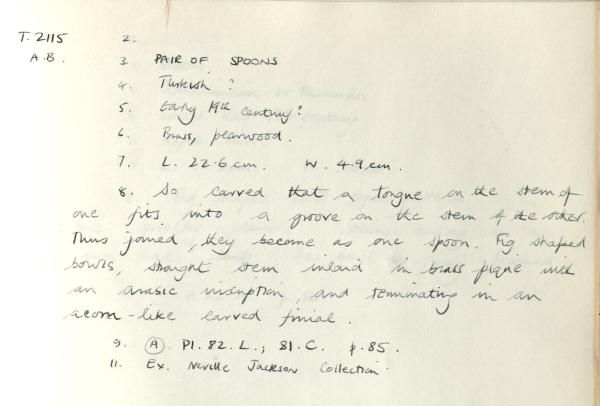 T. 2115 2.
A.B. 3 PAIR OF SPOONS
4. Turkish ?
5. Early 19th century?
6. Brass, pearwood.
7. L. 22.6 cm. W. 4.9 cm.
8. So carved that a tongue on the stem of
one fits into a groove on the stem of the other.
Thus joined, they become as one spoon. Fig shaped
bowls, straight stem inlaid in brass pique with
an arabic inscription, and terminating in an
acorn-like carved finial.
9. (A). Pl. 82. L.; 81. C. p. 85.
11. Ex. Neville Jackson Collection.